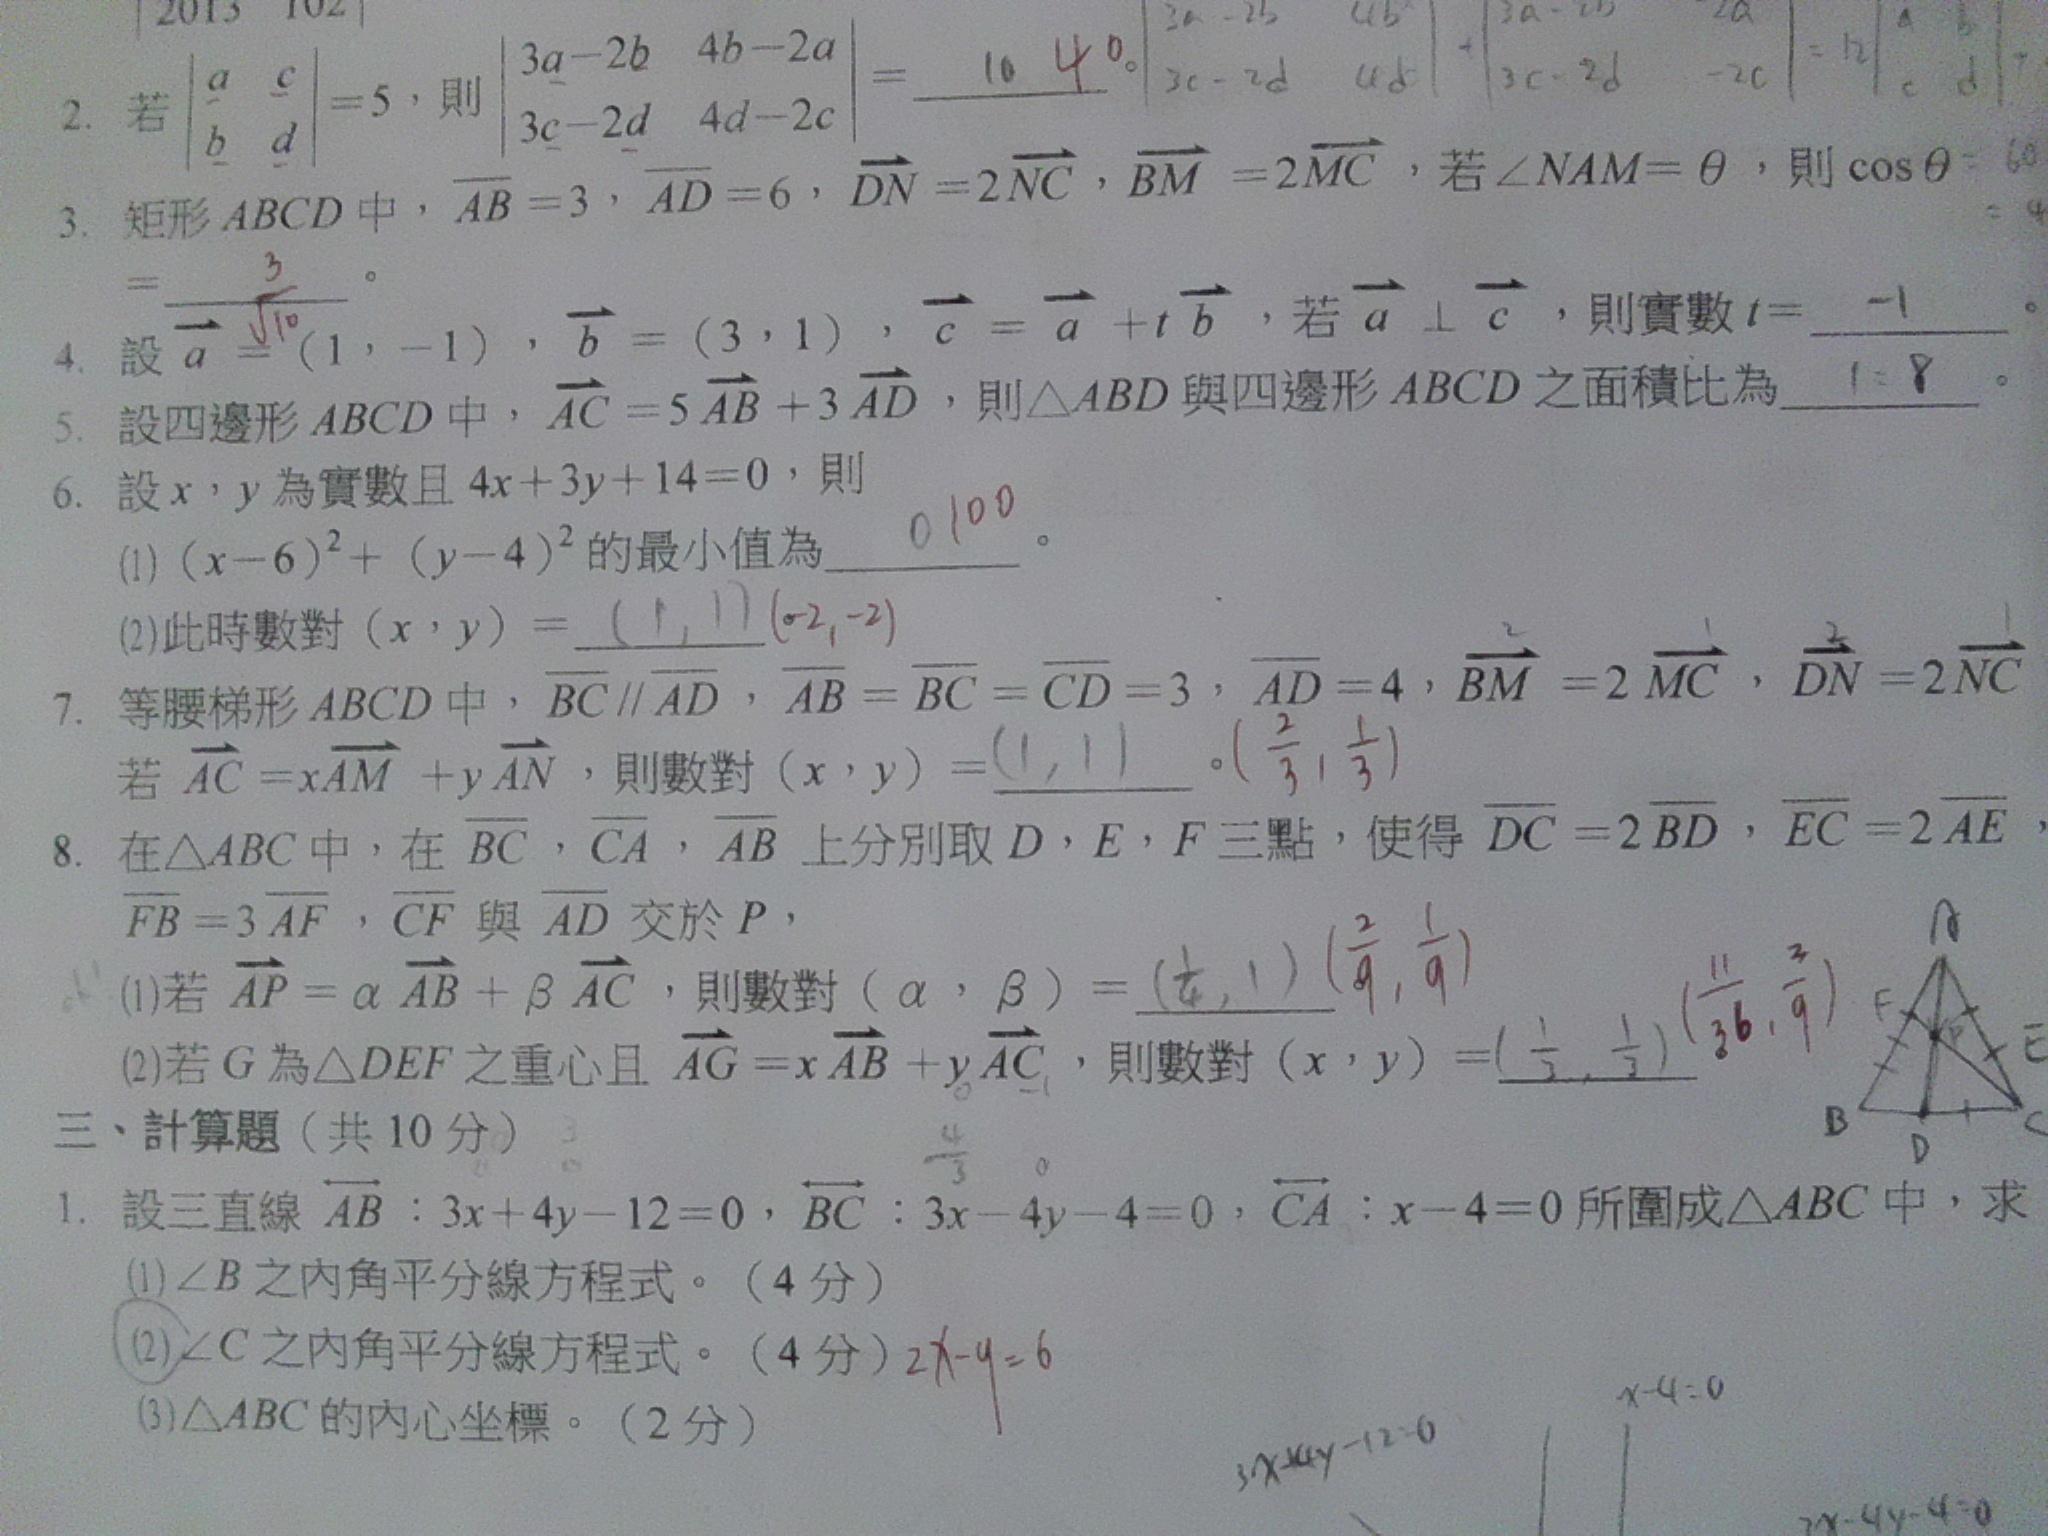 2013 102
2. 若 | a c | =5，則 | 3a－2b 4b－2a | = 10 40。 | 3a-2b 4b | + | 3a-2b -2a | = 12 | a b | +
| b d | | 3c－2d 4d－2c | | 3c-2d 4d | | 3c-2d -2c | | c d |
3. 矩形 ABCD 中，AB=3，AD=6，DN=2NC，BM=2MC，若∠NAM=θ，則 cosθ = 60
= 3/√10。 = 4
4. 設 a =（1，－1），b =（3，1），c = a +t b，若 a ⊥ c，則實數 t= -1。
5. 設四邊形 ABCD 中，AC=5AB+3AD，則△ABD 與四邊形 ABCD 之面積比為 1:8。
6. 設 x，y 為實數且 4x+3y+14=0，則
(1)（x－6）²+（y－4）² 的最小值為 0 100。
(2)此時數對（x，y）= (1,1) (-2,-2)
2 1 2 1
7. 等腰梯形 ABCD 中，BC // AD，AB=BC=CD=3，AD=4，BM=2MC，DN=2NC
若 AC=xAM+yAN，則數對（x，y）= (1,1)。(2/3, 1/3)
8. 在△ABC 中，在 BC，CA，AB 上分別取 D，E，F 三點，使得 DC=2BD，EC=2AE，
FB=3AF，CF 與 AD 交於 P，
(1)若 AP=αAB+βAC，則數對（α，β）= (1/4, 1) (2/9, 1/9)
(2)若 G 為△DEF 之重心且 AG=xAB+yAC，則數對（x，y）= (1/3, 1/3) (11/36, 2/9)
A
F P E
B D C
0 -1
三、計算題（共 10 分）
3 4/3 0
1. 設三直線 AB：3x+4y－12=0，BC：3x－4y－4=0，CA：x－4=0 所圍成△ABC 中，求
(1)∠B 之內角平分線方程式。（4 分）
(2)∠C 之內角平分線方程式。（4 分）2x-y=6
(3)△ABC 的內心坐標。（2 分）
x-4=0
3x+4y-12=0
3x-4y-4=0